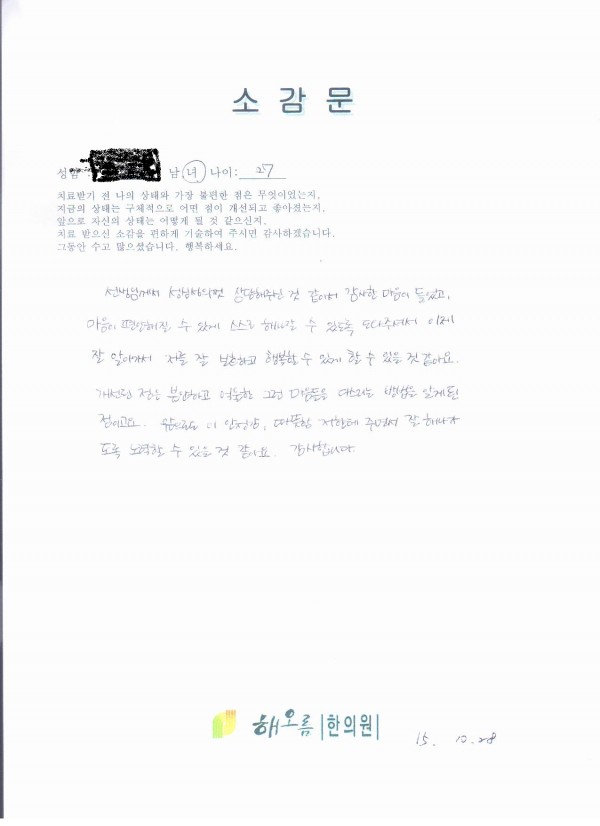 소 감 문
성명 남 녀 나이: 27
치료받기 전 나의 상태와 가장 불편한 점은 무엇이있는지,
지금의 상태는 구체적으로 어떤 점이 개선되고 좋아졌는지,
앞으로 자신의 상태는 어떻게 될 것 같으신지,
치료 받으신 소감을 편하게 기술하여 주시면 감사하겠습니다.
그동안 수고 많으셨습니다. 행복하세요.
선생님께서 상담해주신 것 같아서 감사한 마음이 들었고,
마음이 편안해질 수 있게 스스로 해나갈 수 있도록 도와주셔서 이제
잘 알아가서 저를 잘 보호하고 행복할 수 있게 할 수 있을 것 같아요.
개선된 점은 불안하고 어두운 그런 마음들을 다스리는 방법을 알게된
점이고요. 앞으로도 이 안정감, 따뜻함 저한테 주면서 잘 해나가
도록 노력할 수 있을 것 같아요. 감사합니다.
해오름 |한의원|
15. 10. 28